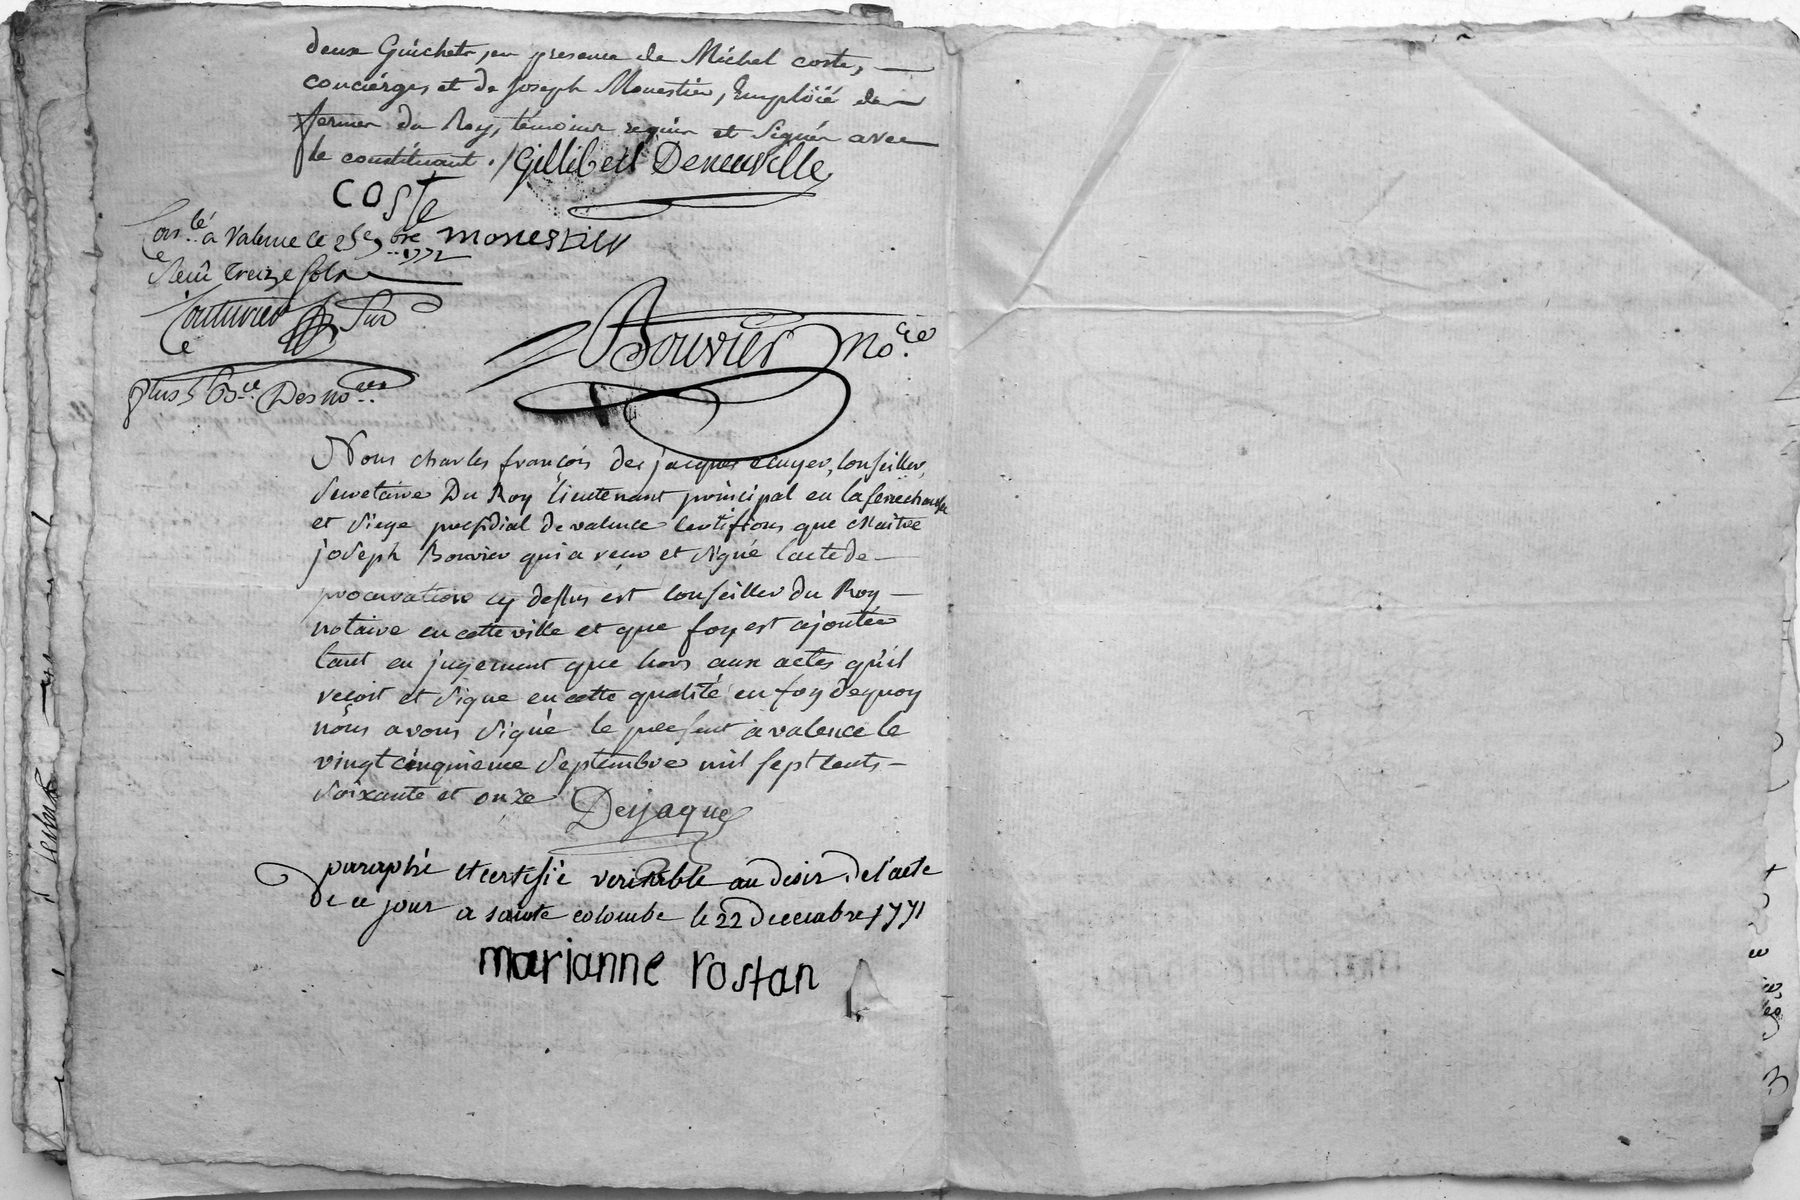 deux Guichets, en presence de Michel coste,
concierges et de Joseph Monestier, Emploïé des
fermes du Roy, témoins requis et signés avec
le constituant. / Gillibert Deneuville
Coste
Con.lé a Valence le 25e 7bre 1771
monestier
Reçu treize sols
Couturier Sur
Bouvier no.re
plus 5 s Des no.res
Nous charles françois des jacques ecuyer, Conseiller,
Secretaire Du Roy lieutenant principal en la senechaussée
et siege presidial de valence Certifions que Maitre
joseph Bouvier qui a reçu et signé l'acte de
procuration cy dessus est Conseiller du Roy
notaire en cette ville et que foy est ajoutée
tant en jugement que hors aux actes qu'il
reçoit et signe en cette qualité en foy dequoy
nous avons signé le present a valence le
vingt cinquieme Septembre mil sept cents
soixante et onze Desjaques
paraphé et certifié veritable au desir de l'acte
de ce jour a sainte colombe le 22 decembre 1771
marianne rostan